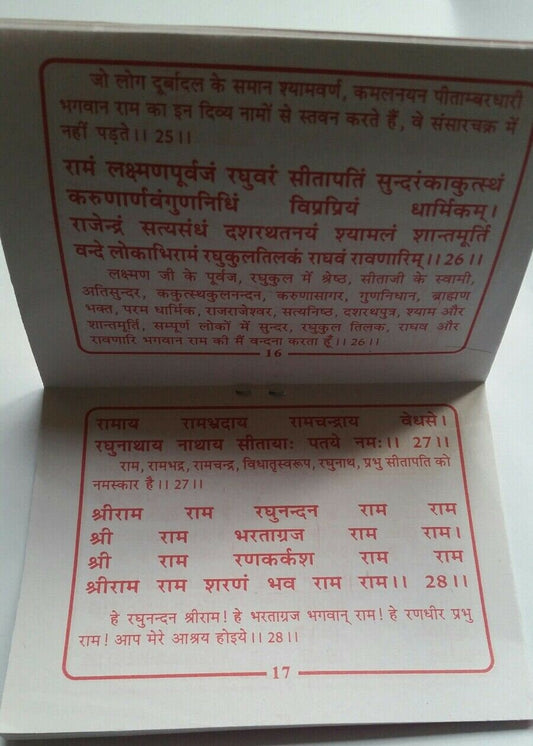 जो लोग दूर्बादल के समान श्यामवर्ण, कमलनयन पीताम्बरधारी
भगवान राम का इन दिव्य नामों से स्तवन करते हैं, वे संसारचक्र में
नहीं पड़ते।। 25।।
रामं लक्ष्मणपूर्वजं रघुवरं सीतापतिं सुन्दरंकाकुत्स्थं
करुणार्णवंगुणनिधिं विप्रप्रियं धार्मिकम्।
राजेन्द्रं सत्यसंधं दशरथतनयं श्यामलं शान्तमूर्ति
वन्दे लोकाभिरामं रघुकुलतिलकं राघवं रावणारिम्।। 26।।
लक्ष्मण जी के पूर्वज, रघुकुल में श्रेष्ठ, सीताजी के स्वामी,
अतिसुन्दर, ककुत्स्थकुलनन्दन, करुणासागर, गुणनिधान, ब्राह्मण
भक्त, परम धार्मिक, राजराजेश्वर, सत्यनिष्ठ, दशरथपुत्र, श्याम और
शान्तमूर्ति, सम्पूर्ण लोकों में सुन्दर, रघुकुल तिलक, राघव और
रावणारि भगवान राम की मैं वन्दना करता हूँ।। 26।।
16
रामाय रामभद्राय रामचन्द्राय वेधसे।
रघुनाथाय नाथाय सीतायाः पतये नमः।। 27।।
राम, रामभद्र, रामचन्द्र, विधातृस्वरूप, रघुनाथ, प्रभु सीतापति को
नमस्कार है।। 27।।
श्रीराम राम रघुनन्दन राम राम
श्री राम भरताग्रज राम राम।
श्री राम रणकर्कश राम राम
श्रीराम राम शरणं भव राम राम।। 28।।
हे रघुनन्दन श्रीराम! हे भरताग्रज भगवान् राम! हे रणधीर प्रभु
राम! आप मेरे आश्रय होइये।। 28।।
17